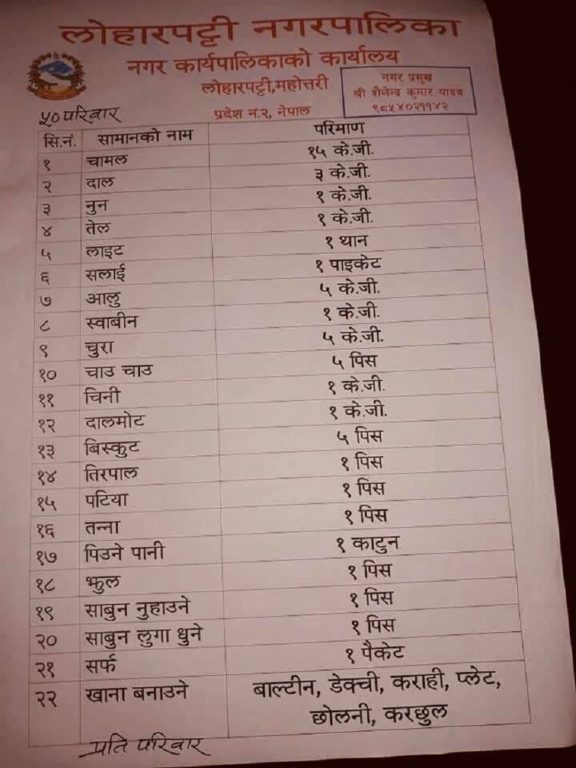 लोहारपट्टी नगरपालिका
नगर कार्यपालिकाको कार्यालय
लोहारपट्टी,महोत्तरी
प्रदेश नं.२, नेपाल
नगर प्रमुख
श्री शैलेन्द्र कुमार यादव
९८५४०२११४२
५० परिवार
सि.नं. सामानको नाम परिमाण
१ चामल १५ के.जी.
२ दाल ३ के.जी.
३ नुन १ के.जी.
४ तेल १ के.जी.
५ लाइट १ थान
६ सलाई १ पाइकेट
७ आलु ५ के.जी.
८ स्वाबीन १ के.जी.
९ चुरा ५ के.जी.
१० चाउ चाउ ५ पिस
११ चिनी १ के.जी.
१२ दालमोट १ के.जी.
१३ बिस्कुट ५ पिस
१४ तिरपाल १ पिस
१५ पटिया १ पिस
१६ तन्ना १ पिस
१७ पिउने पानी १ काटुन
१८ झुल १ पिस
१९ साबुन नुहाउने १ पिस
२० साबुन लुगा धुने १ पिस
२१ सर्फ १ पैकेट
२२ खाना बनाउने बाल्टीन, डेक्ची, कराही, प्लेट,
छोलनी, करछुल
प्रति परिवार